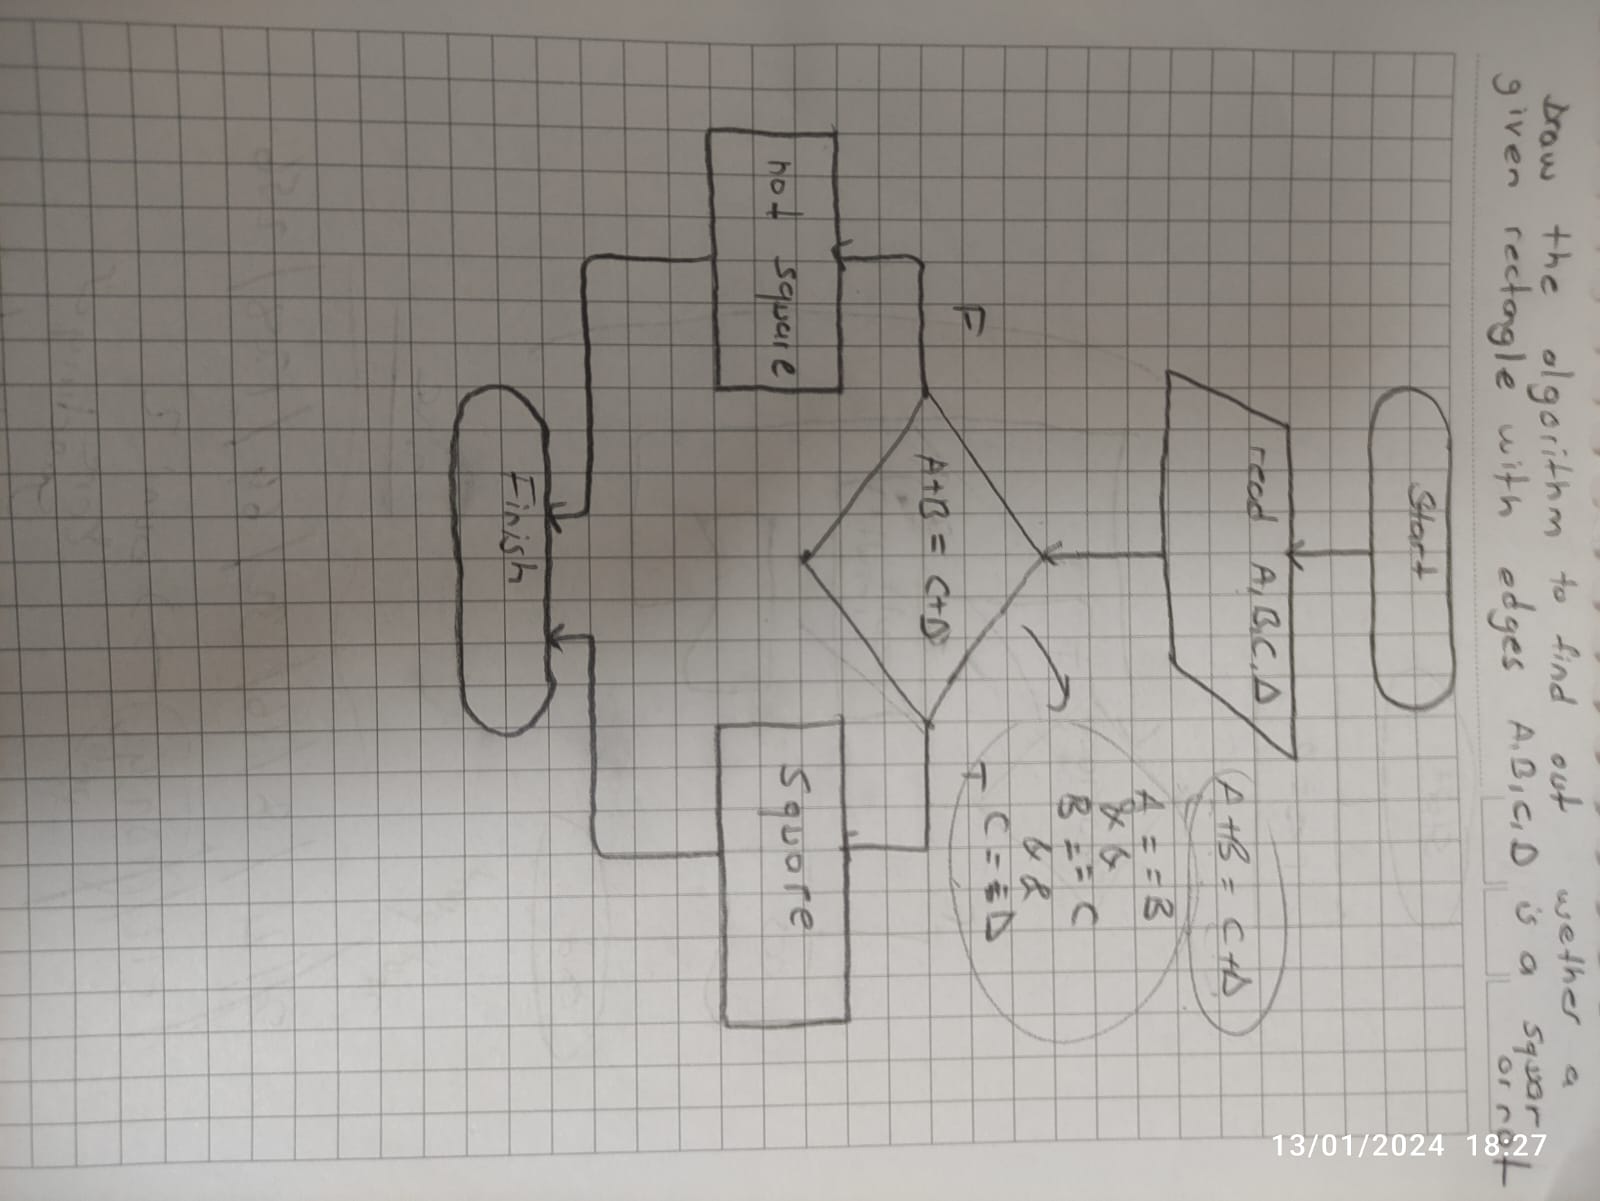 Draw the algorithm to find out wether a
given rectangle with edges A,B,C,D is a squar
or not
Start
read A,B,C,D
A+B = C+D
A == B
&&
B == C
&&
C == D
A+B = C+D
F
T
not square
Square
Finish
13/01/2024 18:27